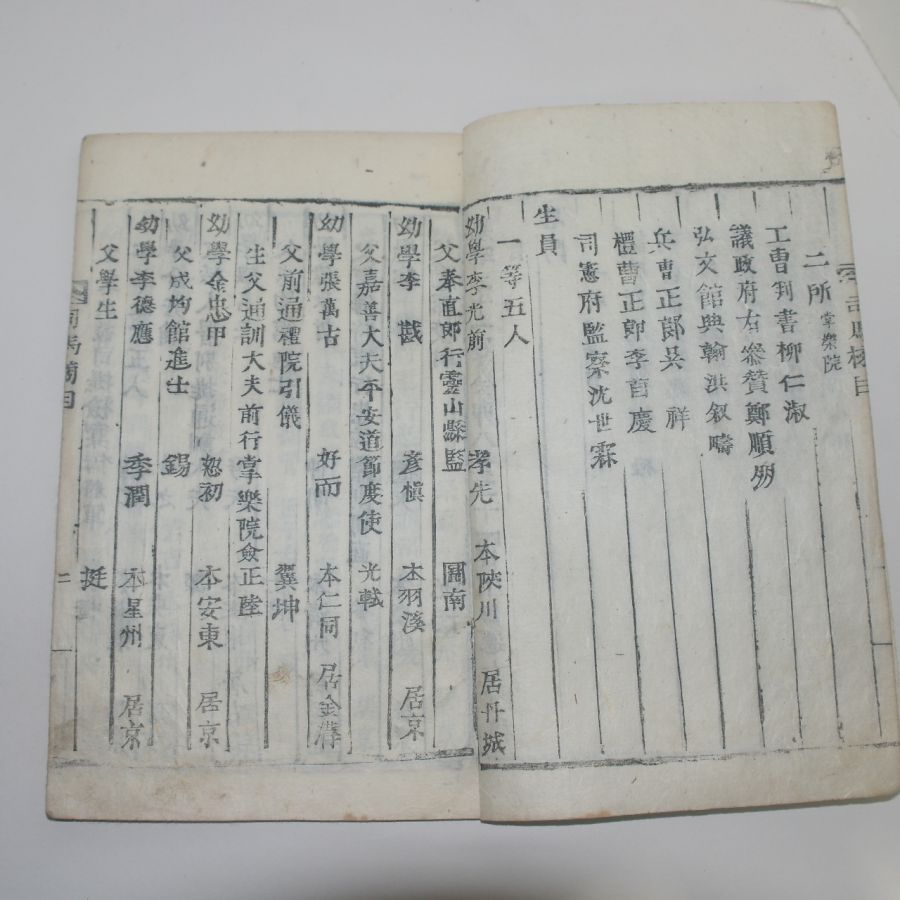 司馬榜目
二所 掌樂院
工曹判書柳仁淑
議政府右參贊鄭順朋
弘文館典翰洪敘疇
兵曹正郎吳 祥
禮曹正郎李首慶
司憲府監察沈世霖
生員
一等五人
幼學李光前 孝先 本陜川 居丹城
父奉直郎行靈山縣監 圖南
幼學李戡 彦愼 本羽溪 居京
父嘉善大夫平安道節度使 光軾
幼學張萬古 好而 本仁同 居金溝
父前通禮院引儀 翼坤
生父通訓大夫前行掌樂院僉正陸
幼學金忠甲 恕初 本安東 居京
父成均館進士 錫
幼學李德應 季潤 本星州 居京
父學生 挺
司馬榜目 二